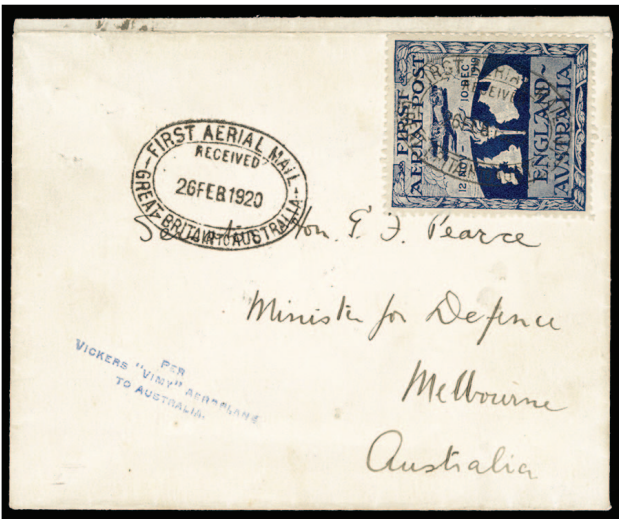 FIRST AERIAL MAIL
RECEIVED
26 FEB 1920
GREAT BRITAIN TO AUSTRALIA
FIRST
AERIAL POST
12 NOV.
10 DEC
1919
ENGLAND
AVSTRALIA
Hon. G. F. Pearce
Minister for Defence
Melbourne
Australia
PER
VICKERS "VIMY" AEROPLANE
TO AUSTRALIA.